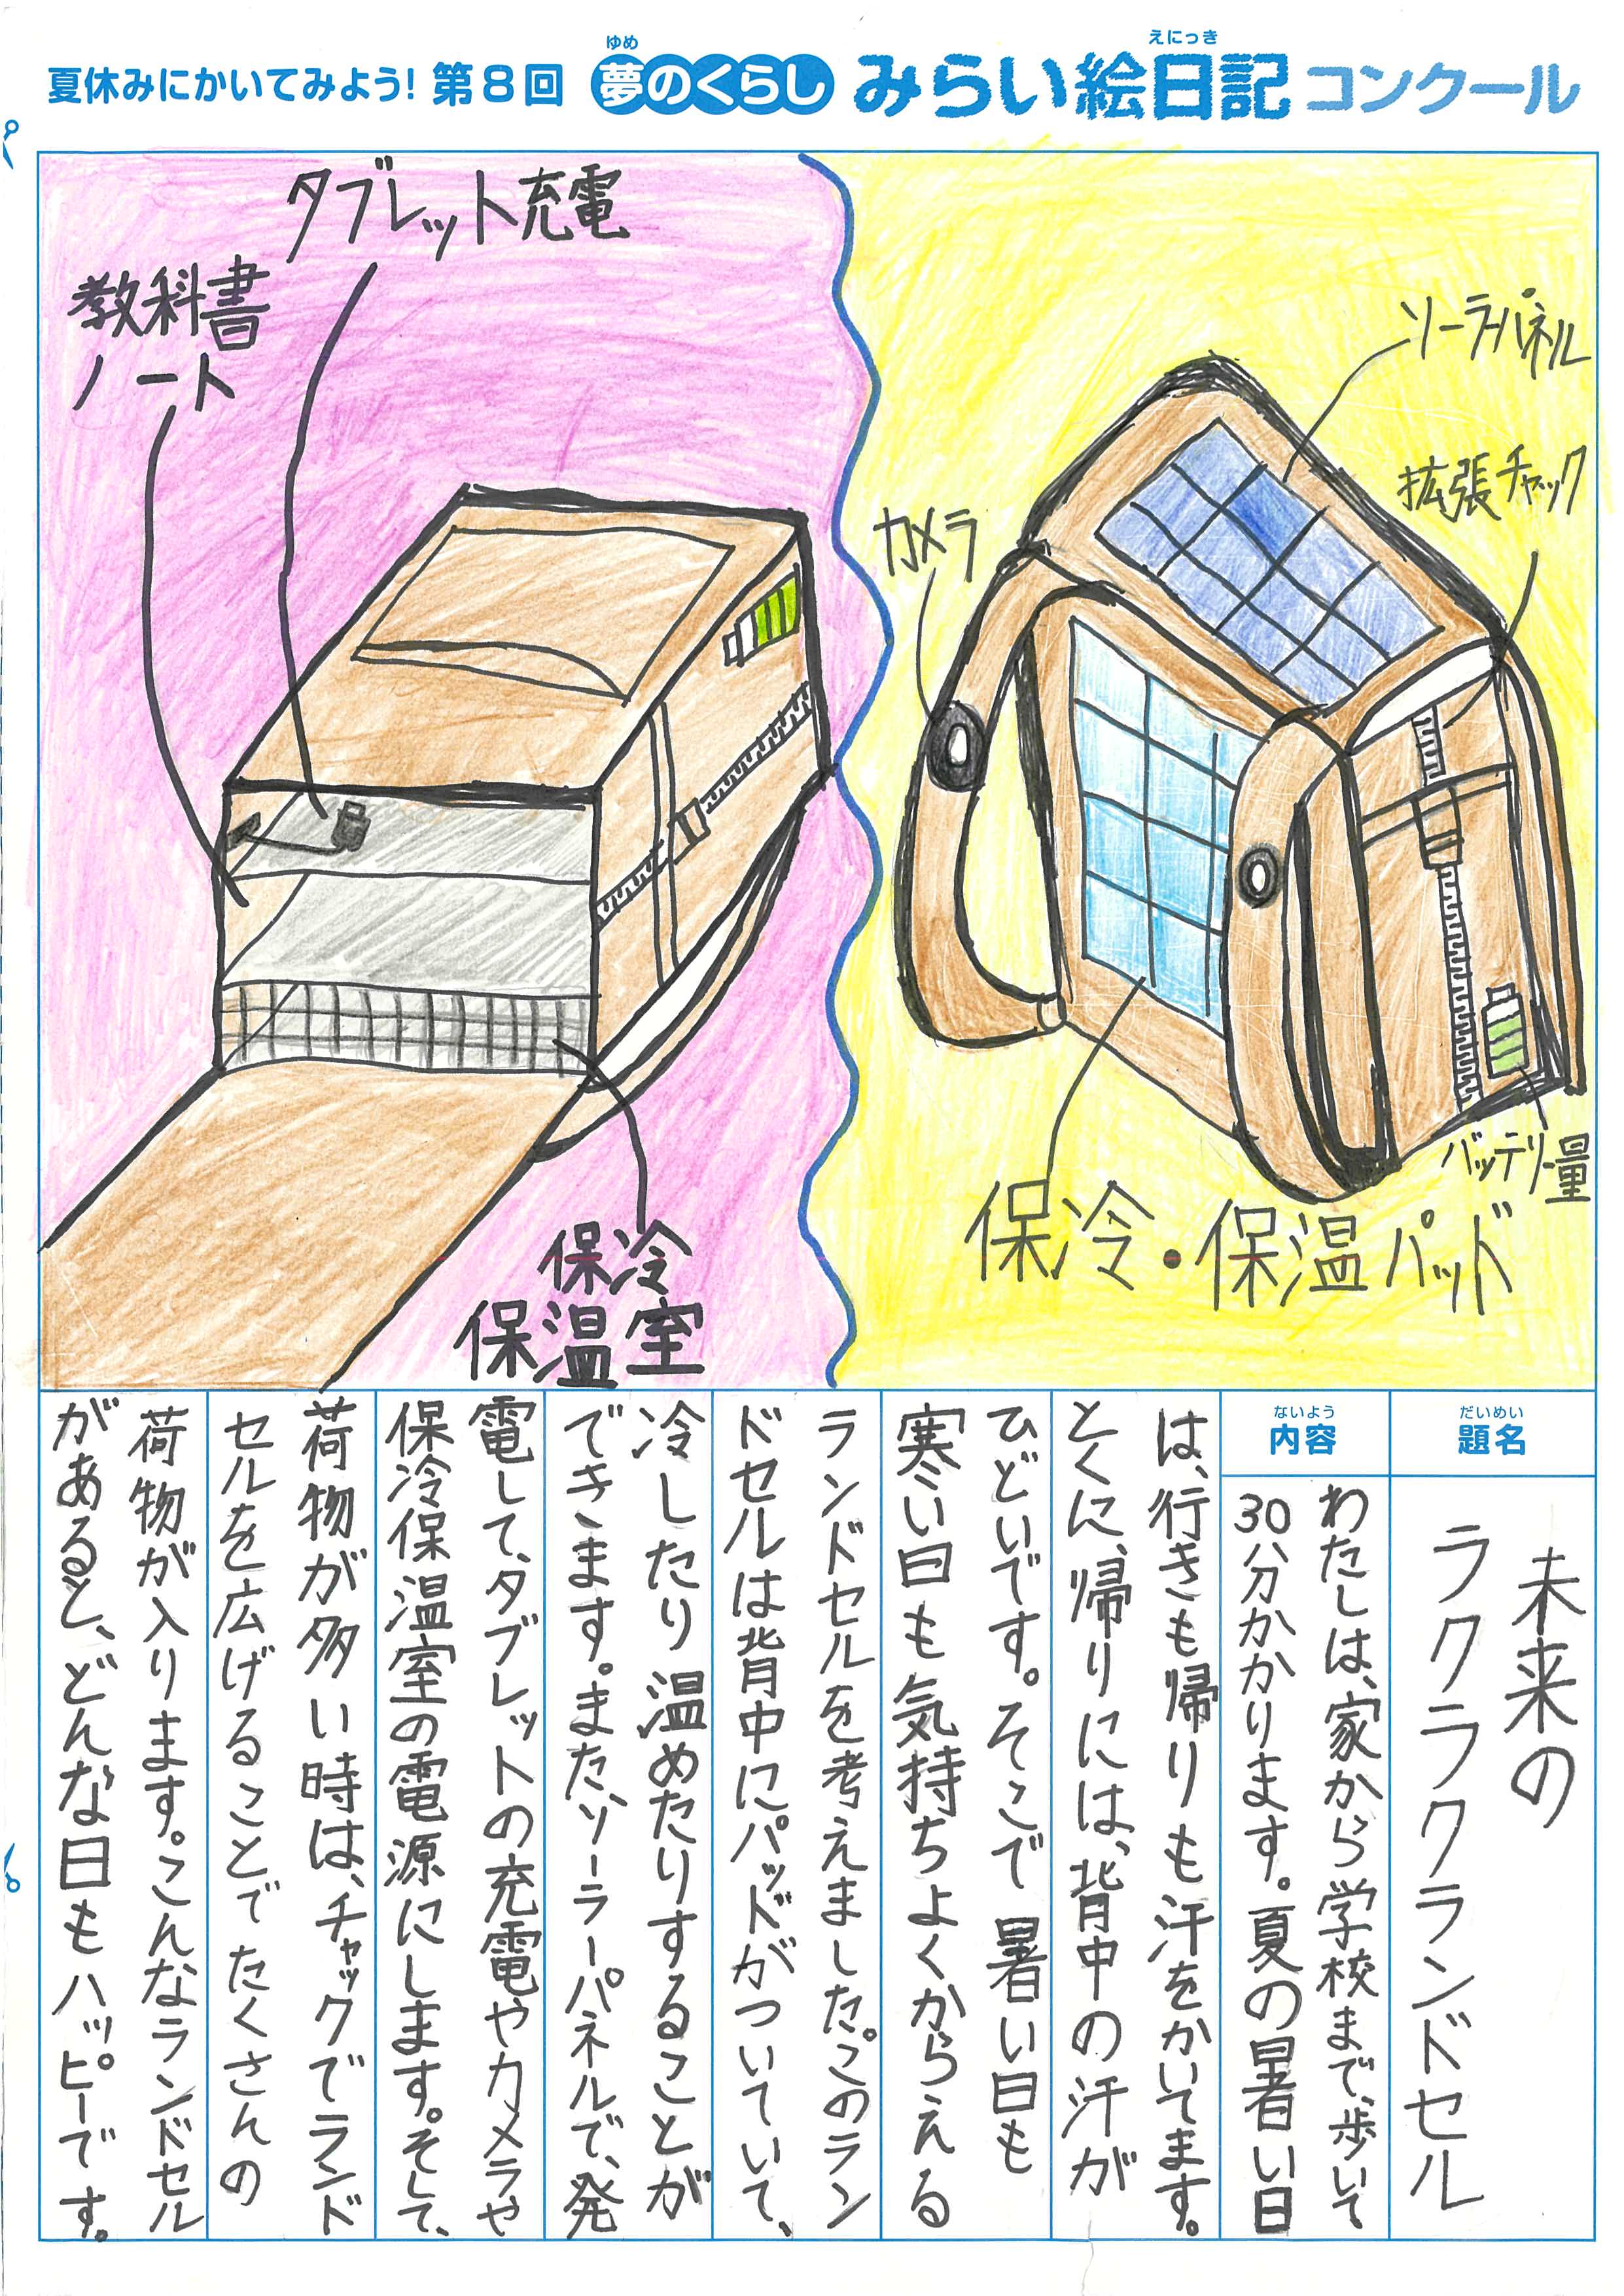 夏休みにかいてみよう! 第8回 夢のくらし みらい絵日記コンクール
ゆめ
えにっき
タブレット充電
教科書
ノート
保冷
保温室
ソーラーパネル
拡張チャック
カメラ
バッテリー量
保冷・保温パッド
だいめい
題名
未来の
ラクラクランドセル
ないよう
内容
わたしは、家から学校まで、歩いて
30分かかります。夏の暑い日
は、行きも帰りも汗をかいてます。
とくに、帰りには、背中の汗が
ひどいです。そこで暑い日も
寒い日も気持ちよくからえる
ランドセルを考えました。このラン
ドセルは背中にパッドがついていて、
冷したり温めたりすることが
できます。また、ソーラーパネルで、発
電して、タブレットの充電やカメラや
保冷保温室の電源にします。そして、
荷物が多い時は、チャックでランド
セルを広げることでたくさんの
荷物が入ります。こんなランドセル
があると、どんな日もハッピーです。